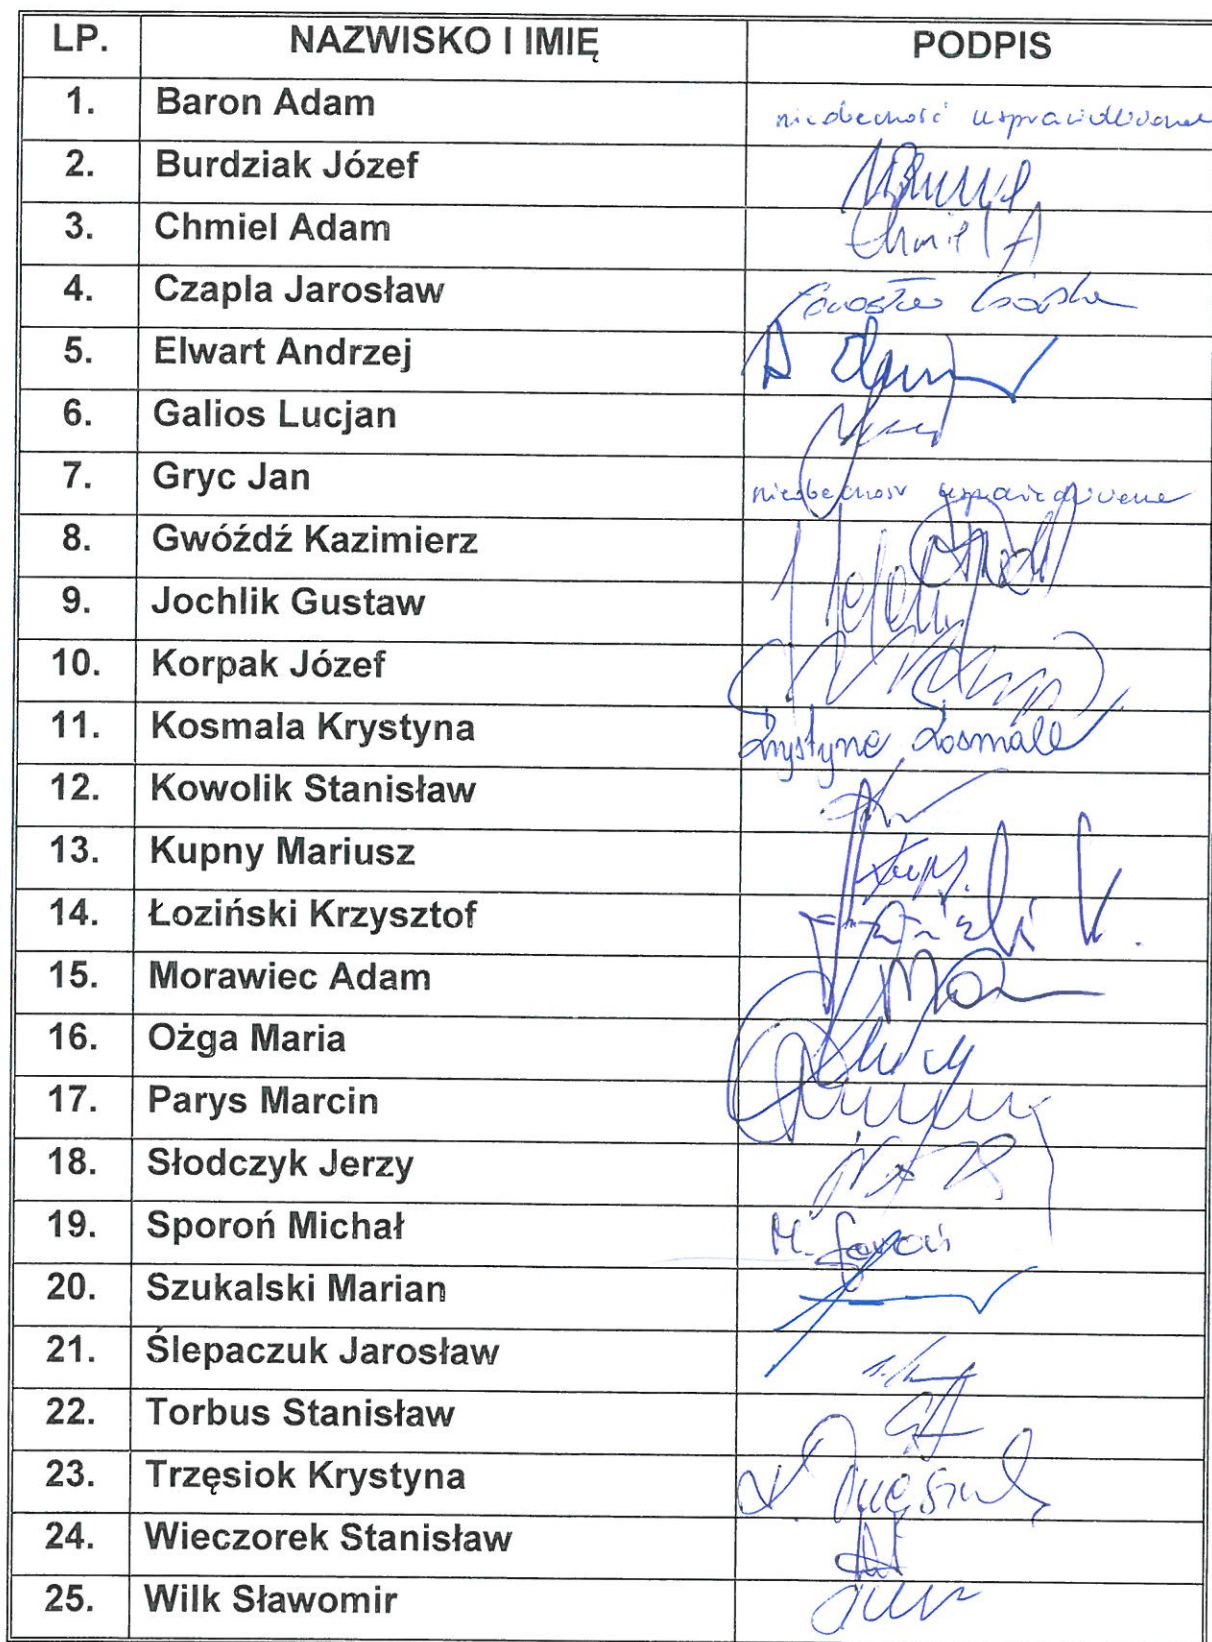 LP. NAZWISKO I IMIĘ PODPIS
1. Baron Adam nieobecność usprawiedliwiona
2. Burdziak Józef
3. Chmiel Adam Chmiel A
4. Czapla Jarosław Jarosław Czapla
5. Elwart Andrzej A
6. Galios Lucjan
7. Gryc Jan nieobecność usprawiedliwiona
8. Gwóźdź Kazimierz
9. Jochlik Gustaw
10. Korpak Józef
11. Kosmala Krystyna Krystyna Kosmala
12. Kowolik Stanisław
13. Kupny Mariusz
14. Łoziński Krzysztof
15. Morawiec Adam
16. Ożga Maria
17. Parys Marcin
18. Słodczyk Jerzy
19. Sporoń Michał M. Sporoń
20. Szukalski Marian
21. Ślepaczuk Jarosław
22. Torbus Stanisław
23. Trzęsiok Krystyna
24. Wieczorek Stanisław
25. Wilk Sławomir